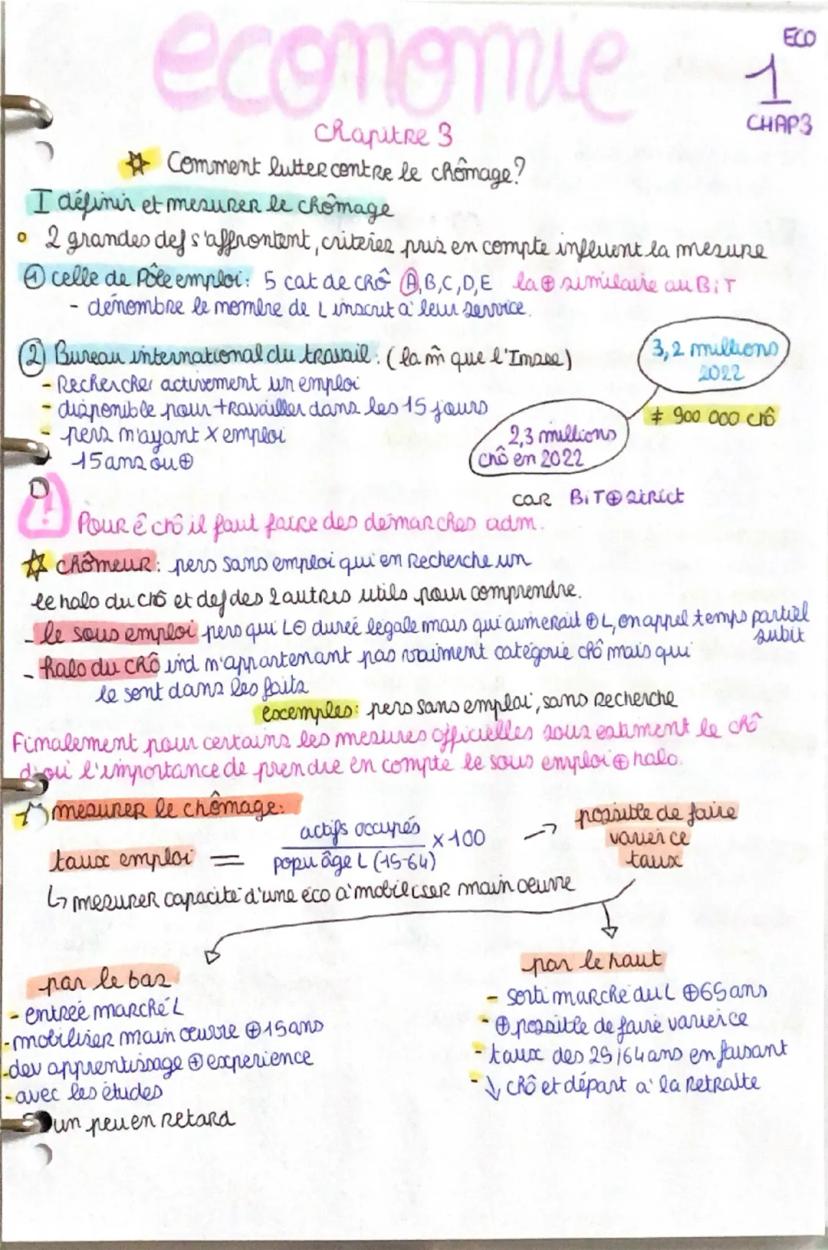 economie
ECO
1
CHAP3
Chapitre 3
☆ Comment lutter contre le chômage?
I définir et mesurer le chômage
° 2 grandes def s'affrontent, criteres pris en compte influent la mesure
① celle de Pôle emploi: 5 cat de chô Ⓐ,B,C,D,E la ⊕ similaire au BiT
- dénombre le nombre de L inscrit à leur service.
② Bureau international du travail: (la m̂ que l'Insee)
3,2 millions
2022
- Rechercher activement un emploi
- disponible pour travailler dans les 15 jours
≠ 900 000 chô
- pers n'ayant X emploi
2,3 millions
chô en 2022
- 15 ans ou ⊕
car BiT ⊕ strict
! Pour ê chô il faut faire des démarches adm.
☆ chômeur: pers sans emploi qui en recherche un
le halo du chô et def des 2 autres utils pour comprendre.
- le sous emploi pers qui L ⊖ dureé légale mais qui aimerait ⊕ L, on appel temps partiel subit
- halo du chô ind n'appartenant pas vraiment catégorie chô mais qui
le sont dans les faits
exemples: pers sans emploi, sans recherche
Finalement pour certains les mesures officielles sous estiment le chô
d'où l'importance de prendre en compte le sous emploi ⊕ halo.
☆ mesurer le chômage:
taux emploi = actifs occupés / popu âge L (15-64) x 100 → possible de faire
varier ce
taux
↳ mesurer capacité d'une éco à mobiliser main oeuvre
par le bas
- entreé marché L
- mobiliser main œuvre ⊕ 15 ans
- dev apprentissage ⊕ experience
- avec les études
un peu en retard
par le haut
- sorti marché du L ⊕ 65 ans
- ⊕ possible de faire varier ce
- taux des 25/64 ans en faisant
- ↓ chô et départ à la retraite